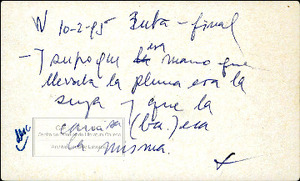 N 10-2-95 Zuta - final
- y supo que la esa mano que
llevaba la pluma era la
suya y que la
camisa (ba.) era
la misma